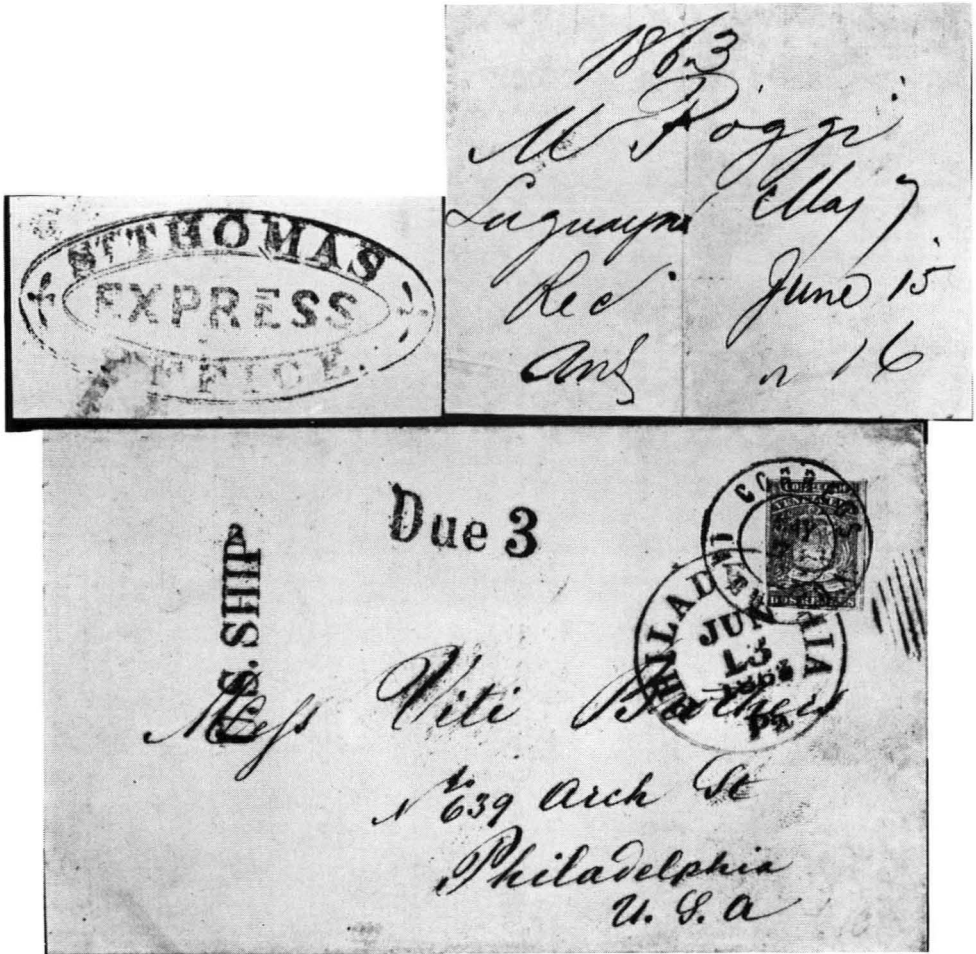 ST THOMAS
EXPRESS
OFFICE.
1863
M Poggi
Laguayra May 7
Rec June 15
Ans " 16
Due 3
U.S. SHIP
CORREOS
PHILADELPHIA
JUN
13
1863
Pa.
Mess Viti Brothers
No 639 Arch St
Philadelphia
U. S. A